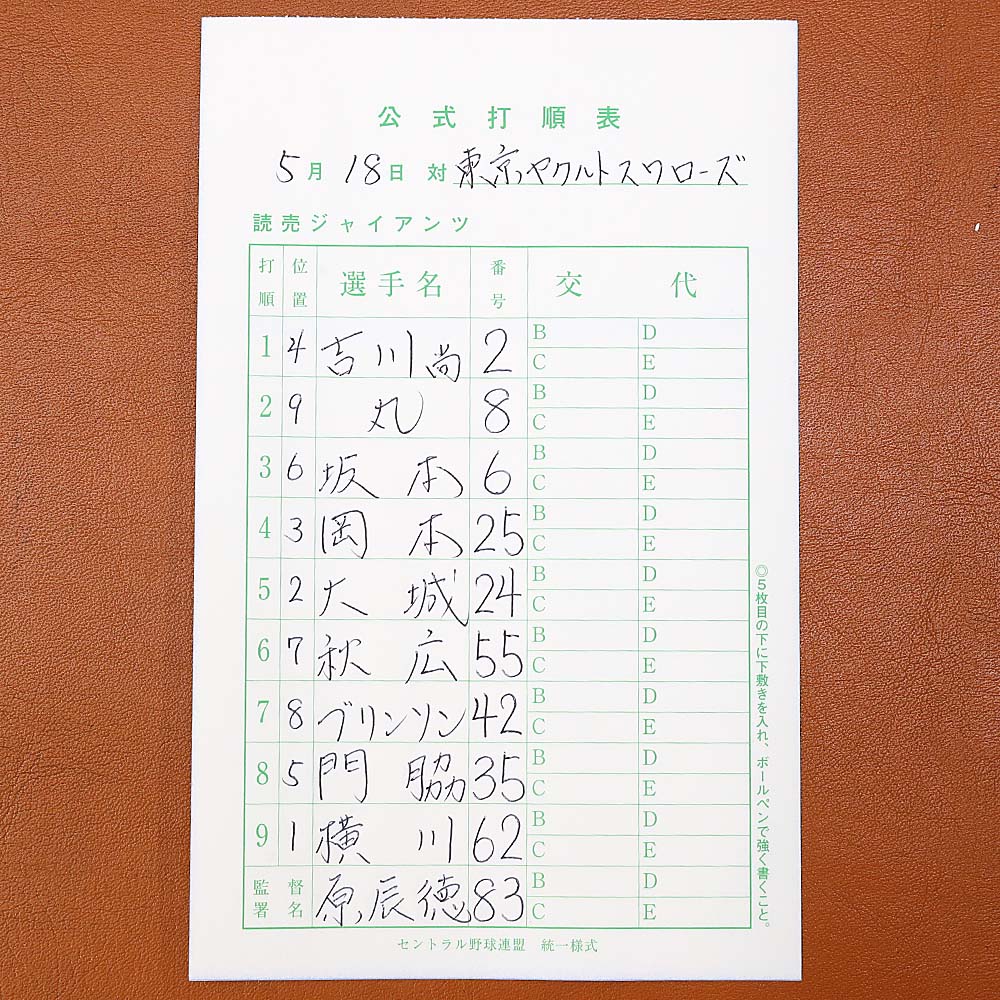 公式打順表
5月18日 対 東京ヤクルトスワローズ
読売ジャイアンツ
打順 位置 選手名 番号 交代
1 4 吉川尚 2 B D
C E
2 9 丸 8 B D
C E
3 6 坂本 6 B D
C E
4 3 岡本 25 B D
C E
5 2 大城 24 B D
C E
6 7 秋広 55 B D
C E
7 8 ブリンソン 42 B D
C E
8 5 門脇 35 B D
C E
9 1 横川 62 B D
C E
監督署名 原辰徳 83 B D
C E
セントラル野球連盟 統一様式
◎5枚目の下に下敷きを入れ、ボールペンで強く書くこと。